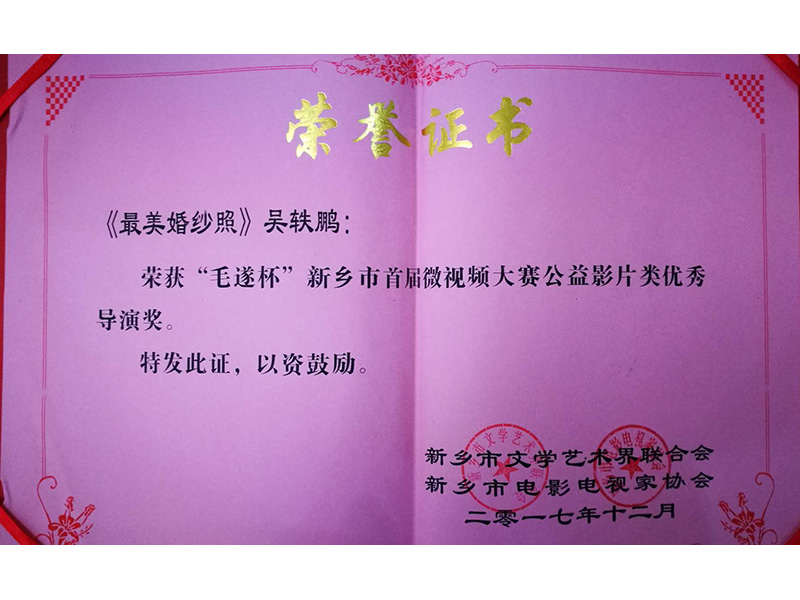 荣誉证书
《最美婚纱照》吴轶鹏：
荣获“毛遂杯”新乡市首届微视频大赛公益影片类优秀
导演奖。
特发此证，以资鼓励。
新乡市文学艺术界联合会
新乡市电影电视家协会
二零一七年十二月